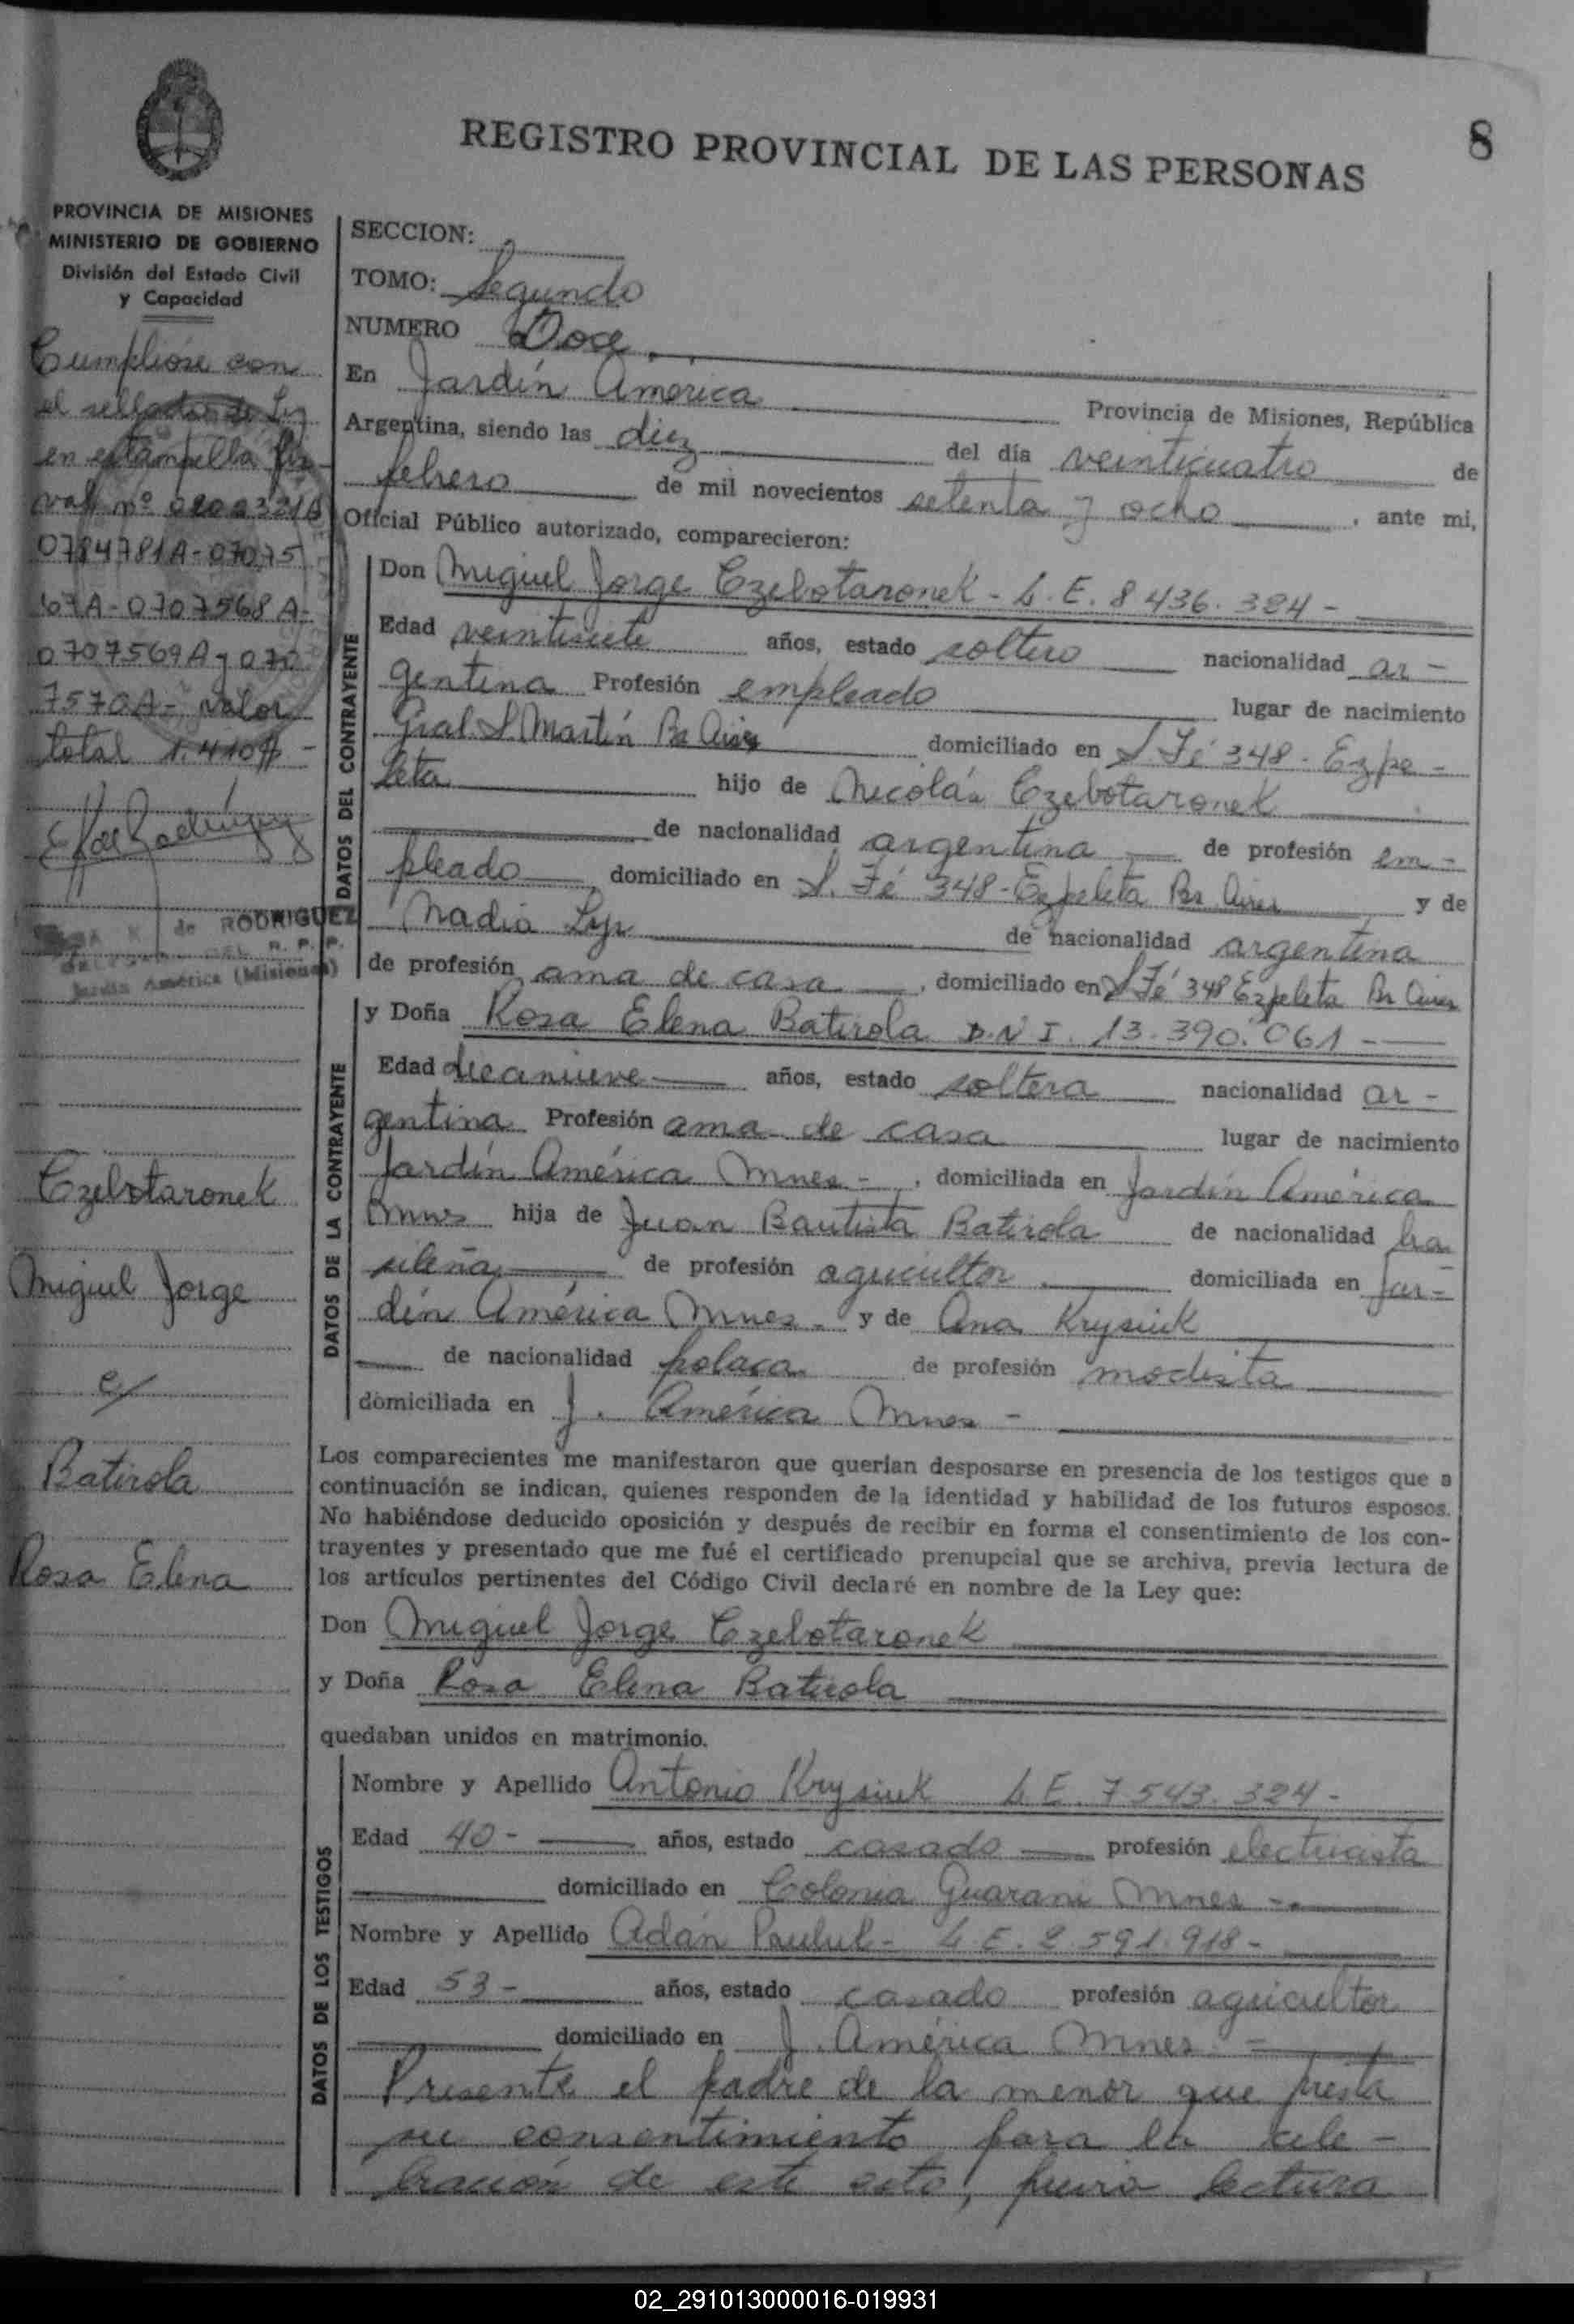 REGISTRO PROVINCIAL DE LAS PERSONAS
8
PROVINCIA DE MISIONES
MINISTERIO DE GOBIERNO
División del Estado Civil
y Capacidad
Cumplióse con
el sellado de Ley
en estampilla fis-
val nº
0784781A-07075
67A-0707568A-
0707569A y 070
7570A- valor
total 1.410$ -
de RODRIGUEZ
DEL R. P. P.
Jardín América (Misiones)
Czebotaronek
Miguel Jorge
c/
Batirola
Rosa Elena
SECCION:
TOMO: Segundo
NUMERO Doce
En Jardín América Provincia de Misiones, República
Argentina, siendo las diez del día veinticuatro de
febrero de mil novecientos setenta y ocho, ante mi,
Oficial Público autorizado, comparecieron:
DATOS DEL CONTRAYENTE
Don Miguel Jorge Czebotaronek - L.E. 8 436.324 -
Edad veintisiete años, estado soltero nacionalidad ar -
gentina Profesión empleado lugar de nacimiento
Gral. S. Martín Bs Aires domiciliado en S. Fé 348 - Ezpe -
leta hijo de Nicolás Czebotaronek
de nacionalidad argentina de profesión em -
pleado, domiciliado en S. Fé 348 - Ezpeleta Bs Aires y de
Nadia de nacionalidad argentina
de profesión ama de casa, domiciliado en S Fé 348 Ezpeleta Bs Aires
DATOS DE LA CONTRAYENTE
y Doña Rosa Elena Batirola D.N I. 13.390.061 -
Edad diecinueve años, estado soltera nacionalidad ar -
gentina Profesión ama de casa lugar de nacimiento
Jardín América Mnes -, domiciliada en Jardín América
Mnes hija de Juan Bautista Batirola de nacionalidad bra
sileña de profesión agricultor domiciliada en Jar-
dín América Mnes - y de Ana Krysiuk
de nacionalidad polaca de profesión modista
domiciliada en J. América Mnes -
Los comparecientes me manifestaron que querían desposarse en presencia de los testigos que a
continuación se indican, quienes responden de la identidad y habilidad de los futuros esposos.
No habiéndose deducido oposición y después de recibir en forma el consentimiento de los con-
trayentes y presentado que me fué el certificado prenupcial que se archiva, previa lectura de
los artículos pertinentes del Código Civil declaré en nombre de la Ley que:
Don Miguel Jorge Czebotaronek
y Doña Rosa Elena Batirola
quedaban unidos en matrimonio.
DATOS DE LOS TESTIGOS
Nombre y Apellido Antonio Krysiuk L E. 7 543.324 -
Edad 40 - años, estado casado profesión electricista
domiciliado en Colonia Guaraní Mnes -
Nombre y Apellido Adán L.E. 2 591.918 -
Edad 53 - años, estado casado profesión agricultor
domiciliado en J. América Mnes -
Presente el padre de la menor que presta
su consentimiento para la cele -
bración de este acto, previa lectura
02_291013000016-019931